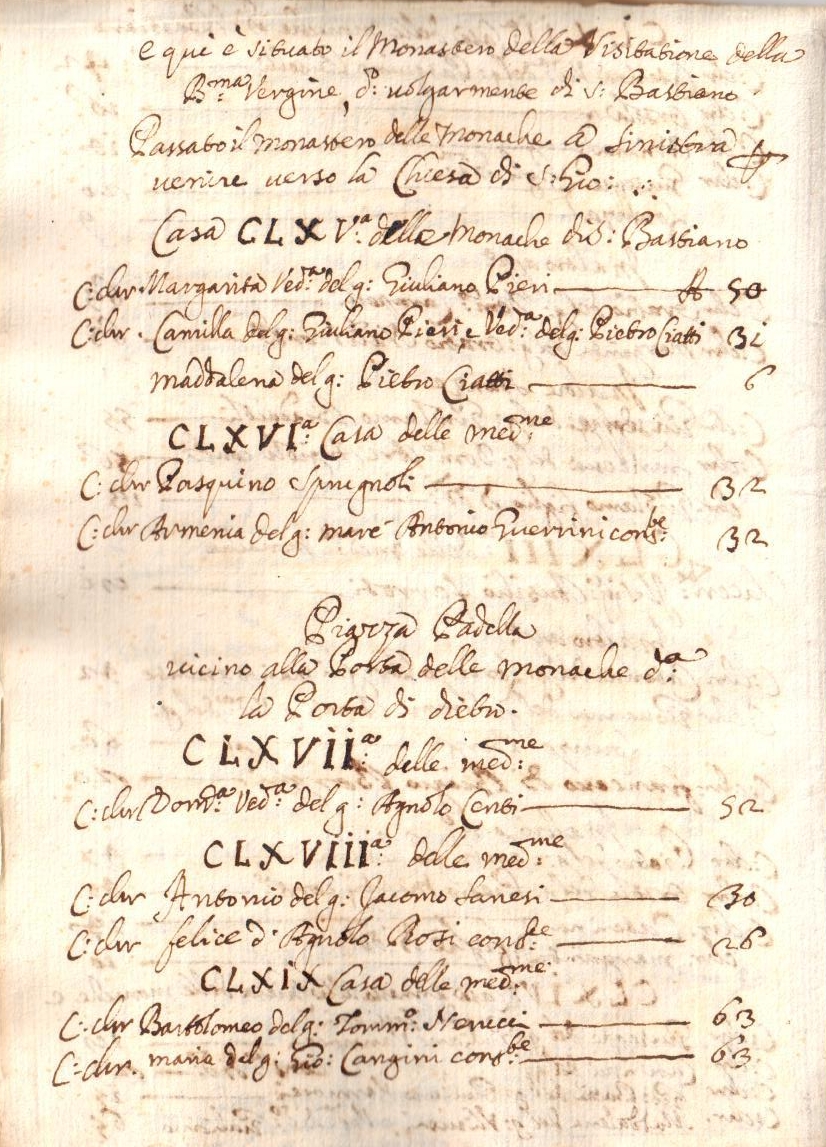 e qui è situato il Monastero della Visitatione della
B:ma Vergine, d: volgarmente di S: Bastiano
Passato il monastero delle Monache a sinistra
venire verso la Chiesa di S: Gio:
Casa CLXV:a delle Monache di S: Bastiano
C: chr Margarita Ved:a del q: Giuliano Pieri — A 50
C: chr. Camilla del q: Giuliano Pieri, e Ved:a del q: Pietro Ciatti 31
maddalena del q: Pietro Ciatti — 6
CLXVI:a Casa delle med:me
C: chr Pasquino Spugnoli — 32
C: chr Armenia del q: marc Antonio Guerrini cons:be 32
Piazza Padella
vicino alla Porta delle monache d:a
la Porta di dietro.
CLXVii:a delle med:me
C: chr Dom:ca Ved:a del q: Agnolo Centi — 52
CLXVIIii:a delle med:me
C: chr Antonio del q: Jacomo Sanesi — 30
C: chr felice d'Agnolo Rosi cons:be — 26
CLXiX Casa delle med:me
C: chr Bartolomeo del q: Tomm:o Nerucci — 63
C: chr. maria del q: Gio: Cangini cons:be — 63